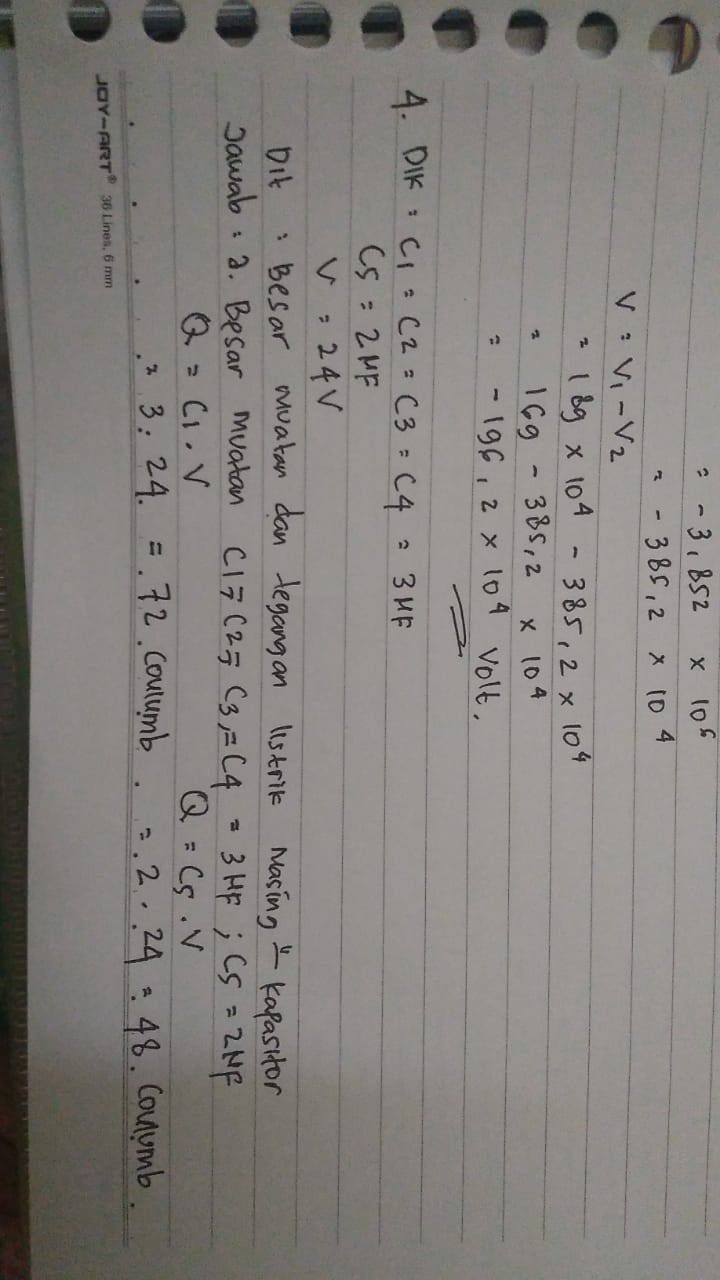 = -3,852 x 10⁶
= -385,2 x 10⁴
V = V₁ - V₂
= 189 x 10⁴ - 385,2 x 10⁴
= 169 - 385,2 x 10⁴
= -196,2 x 10⁴ Volt.
4. DIK : C1 = C2 = C3 = C4 = 3 μF
C5 = 2 μF
V = 24 V
Dit : Besar muatan dan tegangan listrik Masing" kapasitor
Jawab : a. Besar muatan C1 = C2 = C3 = C4 = 3 μF ; C5 = 2 μF
Q = C1 . V Q = C5 . V
= 3 . 24 = 72 Coulumb = 2 . 24 = 48 Coulumb
JOY-ART® 36 Lines, 6 mm